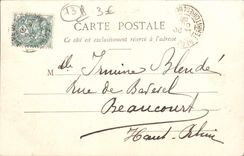 13 3€
CARTE POSTALE
Ce côté est exclusivement réservé à l'adresse
M lle Irmine Blendé
Rue de
Beaucourt
Haut-Rhin